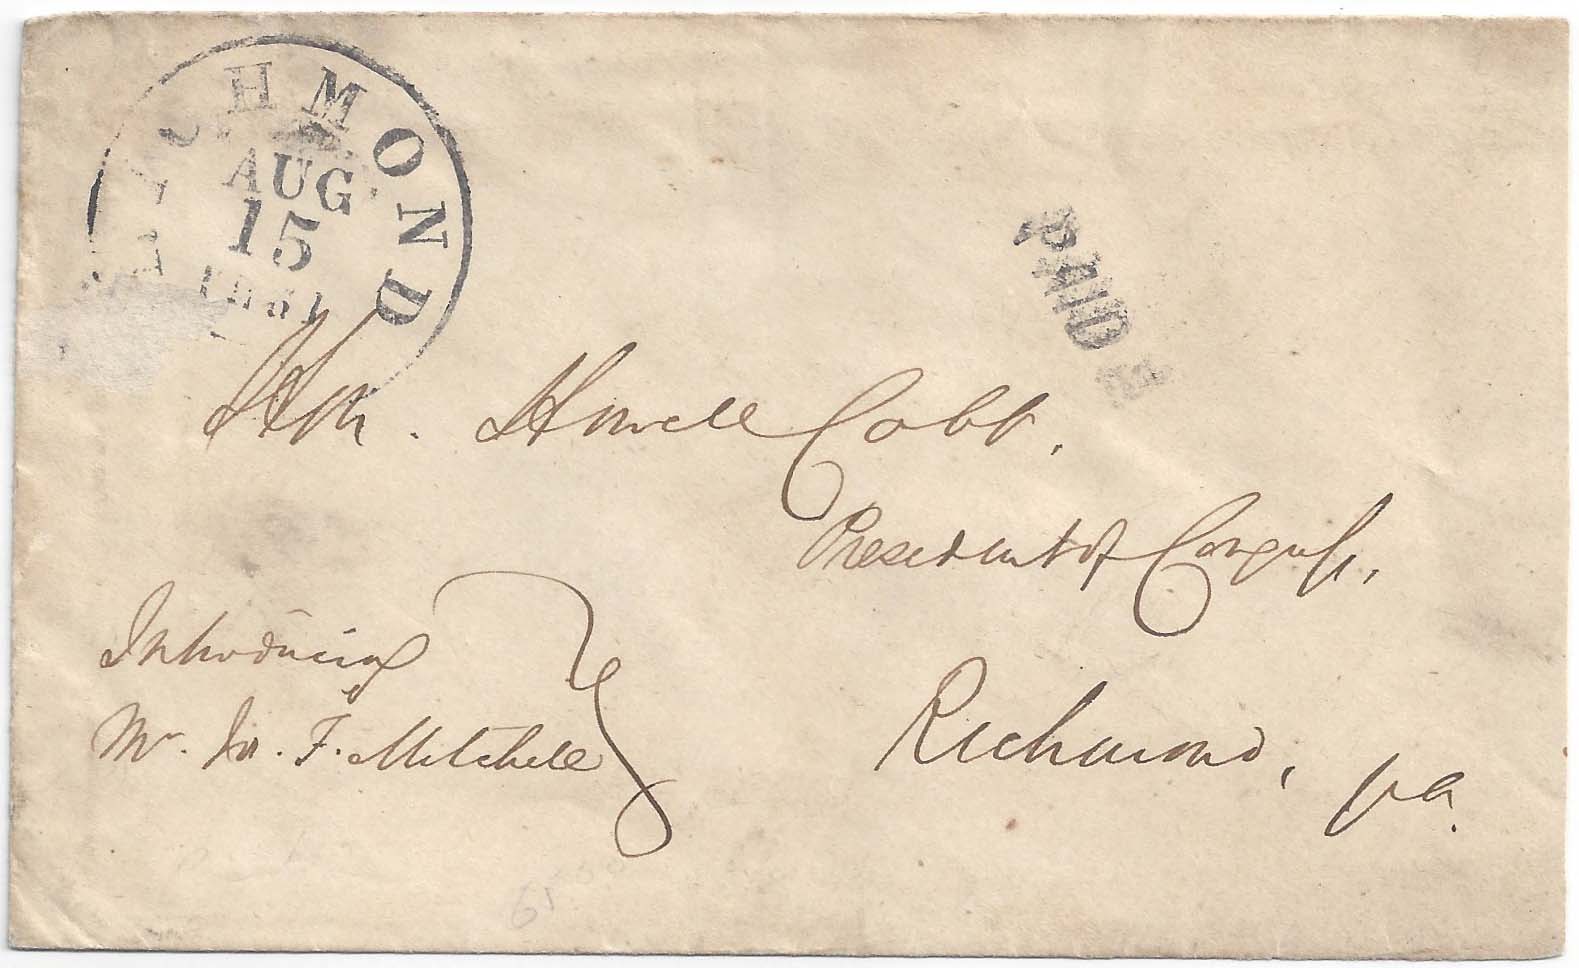 RICHMOND
AUG
15
1861
PAID
Hon. Howell Cobb,
President of Congress,
Richmond, Va.
Introducing
Mr. Jn. F. Mitchell